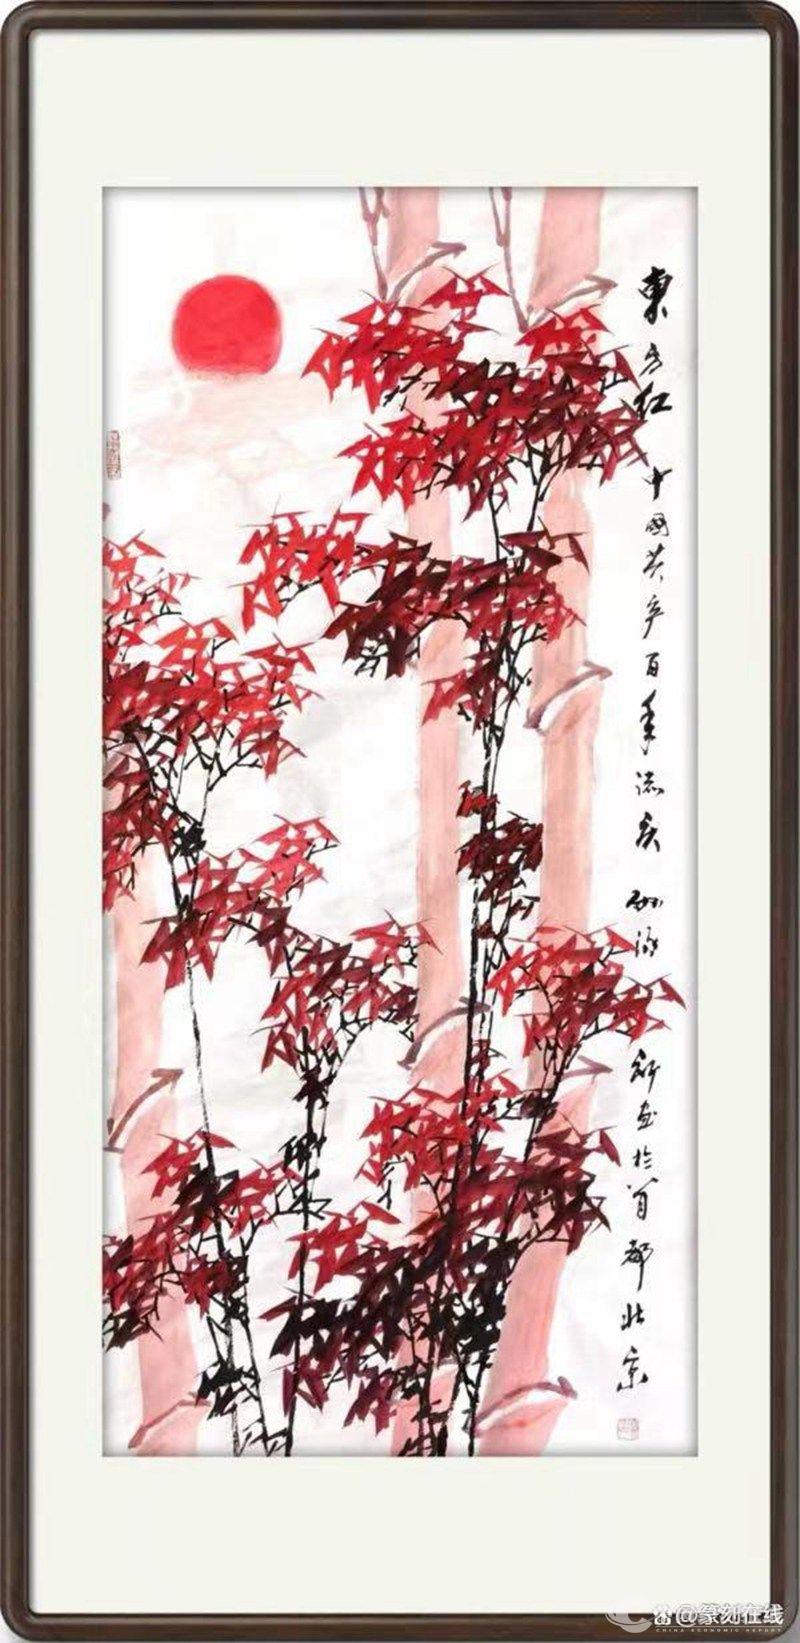 東方红 中國共产百年誌庆 新画於首都北京
@篆刻在线
CHINA ECONOMIC REPORT